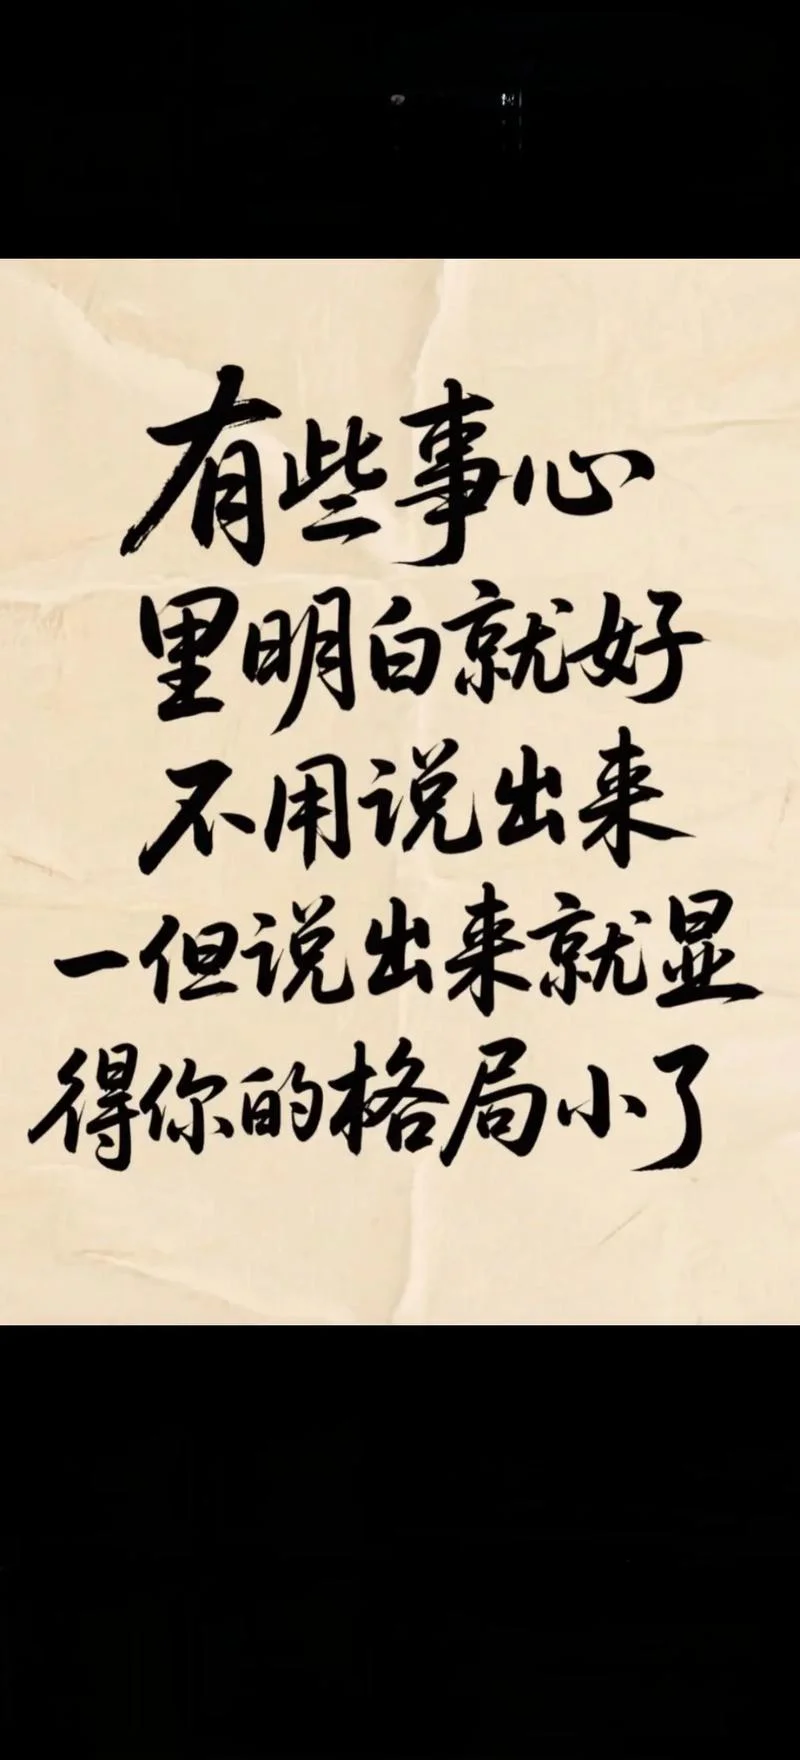 有些事心
里明白就好
不用说出来
一但说出来就显
得你的格局小了